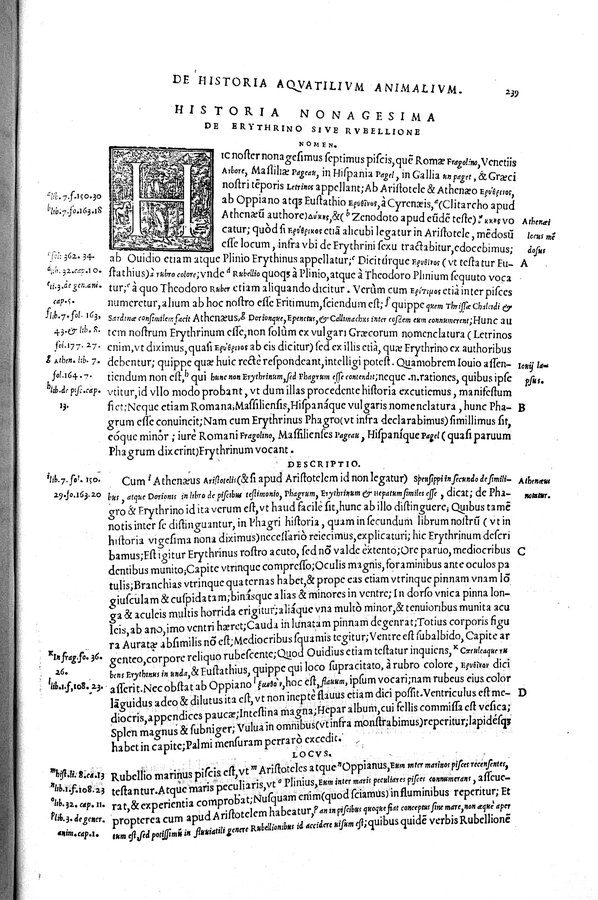 DE HISTORIA AQVATILIVM ANIMALIVM.
239
HISTORIA NONAGESIMA
DE ERYTHRINO SIVE RVBELLIONE
NOMEN.
HIC noster nonagesimus septimus piscis, quē Romæ Fragolino, Venetiis
Arbore, Massiliæ Pageau, in Hispania Pagel, in Gallia un paget, & Græci
nostri tēporis Letrinos appellant; Ab Aristotele & Athenæo Ερύθρινος,
ab Oppiano atqs Eustathio Ερυθῖνος, à Cyrenæis, a(Clitarcho apud
Athenæū authore) &( b Zenodoto apud eūdē teste) vo
catur; quòd si Ερύθρινος etiā alicubi legatur in Aristotele, mēdosū
esse locum, infra vbi de Erythrini sexu tractabitur, edocebimus;
ab Ouidio etiam atque Plinio Erythinus appellatur; c Dicitúrque Ερυθῖνος ( vt testatur Eu-
stathius) à rubro colore; vnde d Rubellio quoqs à Plinio, atque à Theodoro Plinium sequuto voca
tur; e à quo Theodoro Ruber etiam aliquando dicitur. Verùm cum Ερίτιμος etiā inter pisces
numeretur, alium ab hoc nostro esse Eritimum, sciendum est; f quippe quem Thrissæ Chalcidi &
Sardinæ consimilem facit Athenæus, g Dorionque, Epenetus, & Callimachus inter eosdem eum connumerent; Hunc au
tem nostrum Erythrinum esse, non solùm ex vulgari Græcorum nomenclatura ( Letrinos
enim, vt diximus, quasi Ερύθρινος ab eis dicitur) sed ex illis etiā, quæ Erythrino ex authoribus
debentur; quippe quæ huic rectè respondeant, intelligi potest. Quamobrem Iouio assen-
tiendum non est, h qui hunc non Erythrinum, sed Phagrum esse contendit; neque .n. rationes, quibus ipse
vtitur, id vllo modo probant, vt dum illas procedente historia excutiemus, manifestum
fiet; Neque etiam Romana, Massiliensis, Hispanáque vulgaris nomenclatura, hunc Pha-
grum esse conuincit; Nam cum Erythrinus Phagro (vt infra declarabimus) simillimus sit,
eóque minor; iurè Romani Fragolino, Massilienses Pageau, Hispaníque Pagel ( quasi paruum
Phagrum dixerint) Erythrinum vocant.
DESCRIPTIO.
Cum i Athenæus Aristotelis (& si apud Aristotelem id non legatur) Speusippi in secundo de simili-
bus, atque Dorionis in libro de piscibus testimonio, Phagrum, Erythrinum & Hepatum similes esse, dicat; de Pha-
gro & Erythrino id ita verum est, vt haud facilè sit, hunc ab illo distinguere; Quibus tamē
notis inter se distinguantur, in Phagri historia, quam in secundum librum nostrū ( vt in
historia vigesima nona diximus) necessariò reiecimus, explicaturi; hic Erythrinum descri
bamus; Est igitur Erythrinus rostro acuto, sed nō valde extento; Ore paruo, mediocribus
dentibus munito; Capite vtrinque compresso; Oculis magnis, foraminibus ante oculos pa
tulis; Branchias vtrinque quaternas habet, & prope eas etiam vtrinque pinnam vnam lō
giusculam & cuspidatam; binásque alias & minores in ventre; In dorso vnica pinna lon-
ga & aculeis multis horrida erigitur; aliáque vna multò minor, & tenuioribus munita acu
leis, ab ano, imo ventri hæret; Cauda in lunatam pinnam degenrat; Totius corporis figu
ra Auratæ absimilis nō est; Mediocribus squamis tegitur; Ventre est subalbido, Capite ar
genteo, corpore reliquo rubescente; Quod Ouidius etiam testatur inquiens, k Cœruleaque ru
bens Erythinus in unda, & Eustathius, quippe qui loco supracitato, à rubro colore, Ερυθῖνον dici
asserit. Nec obstat ab Oppiano l ξανθὸν, hoc est, flauum, ipsum vocari; nam rubeus eius color
lāguidus adeo & dilutus ita est, vt non ineptè flauus etiam dici possit. Ventriculus est me-
diocris, appendices paucæ; Intestina magna; Hepar album, cui fellis commissa est vesica;
Splen magnus & subniger; Vulua in omnibus (vt infra monstrabimus) reperitur; lapidésqs
habet in capite; Palmi mensuram perrarò excedit.
LOCVS.
Rubellio marinus piscis est, vt m Aristoteles atque n Oppianus, Eum inter marinos pisces recensentes,
testantur. Atque maris peculiaris, vt o Plinius, Eum inter maris peculiares pisces connumerat, asseue-
rat, & experientia comprobat; Nusquam enim (quod sciamus) in fluminibus reperitur; Et
propterea cum apud Aristotelem habeatur, p an in piscibus quoque fiat conceptus sine mare, non æquè aper
tum est, sed potissimū in fluuiatili genere Rubellionibus id accidere uisum est; quibus quidē verbis Rubellionē
a lib. 7. f. 150. 30
b lib. 7. fo. 163. 18
c fol. 362. 34.
d lib. 32. cap. 10.
e li. 3. de gen. ani.
cap. 5.
f lib. 7. fol. 163,
43. & lib. 8.
fol. 177. 27.
g Athen. lib. 7.
fol. 164. 7.
h lib. de pisc. cap.
13.
i lib. 7. fol. 150.
29. fo. 163. 20
k In frag. fo. 36.
26.
l lib. 1. f. 108. 23.
m hist. li. 8. ca. 13
n lib. 1. f. 108. 23
o lib. 32. cap. 11.
p lib. 3. de gener.
anim. cap. 1.
Athenæi
locus mē
dosus
A
Iouij la-
psus.
B
Athenæus
notatur.
C
D